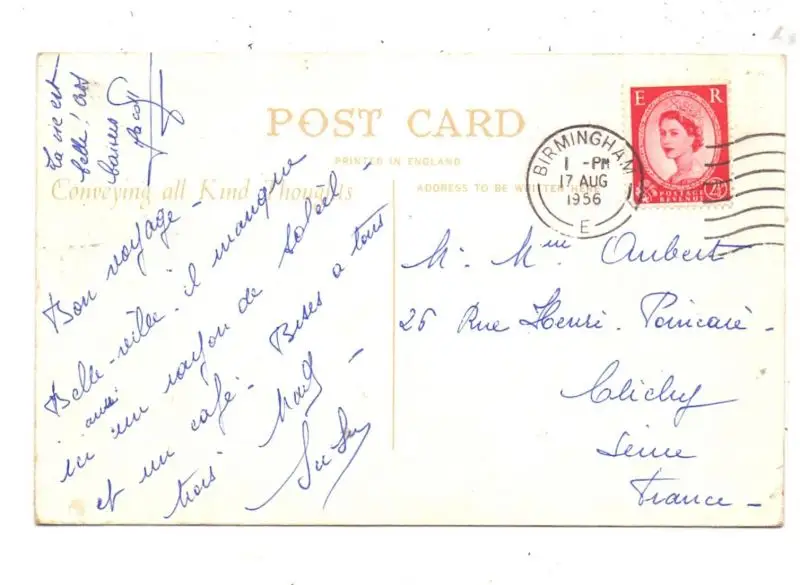 La vie est
belle !
baisers
POST CARD
PRINTED IN ENGLAND
Conveying all Kind Thoughts
ADDRESS TO BE WRITTEN HERE
E R
POSTAGE
REVENUE
BIRMINGHAM
1 - PM
17 AUG
1956
E
Bon voyage -
Belle-ville. il manque
ici aussi un rayon de soleil -
et un café. Bises à tous
trois
M. Mme Aubert
26 Rue Henri. Poincaré -
Clichy
Seine
France -